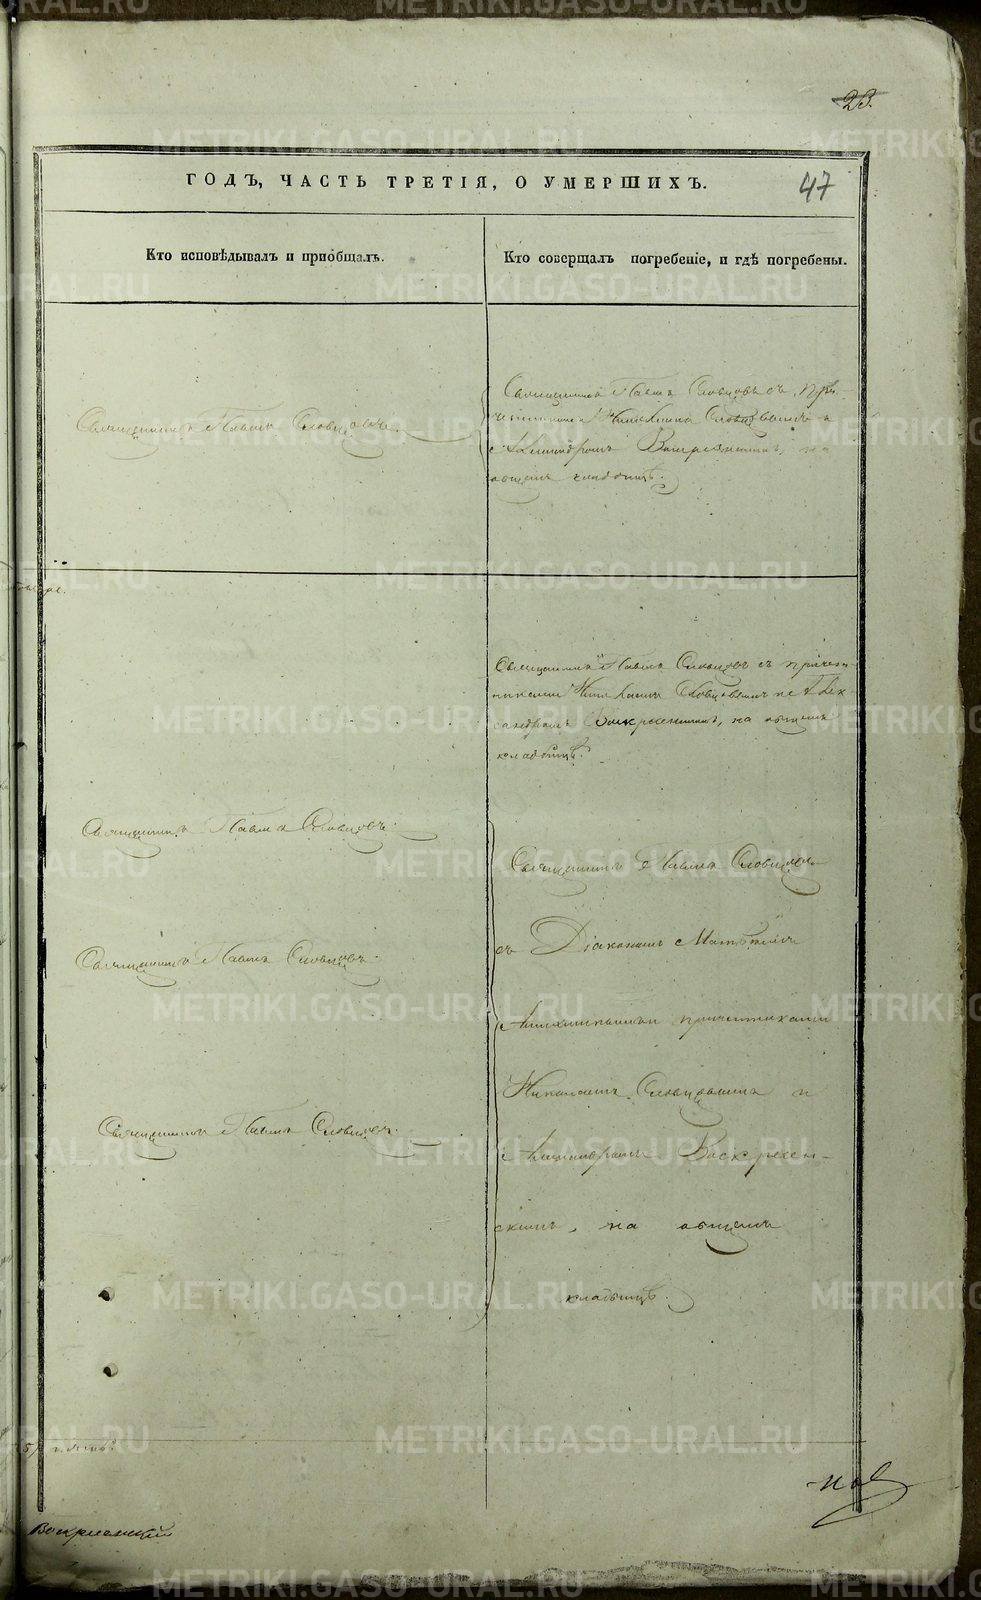 23.
ГОДЪ, ЧАСТЬ ТРЕТІЯ, О УМЕРШИХЪ.
47
Кто исповѣдывалъ и пріобщалъ.
Кто совершалъ погребеніе, и гдѣ погребены.
Священникъ Павелъ Словцовъ.
Священникъ Павелъ Словцовъ съ при-
четниками Николаемъ Словцовымъ и
Александромъ Воскресенскимъ, на
общемъ кладбищѣ.
Священникъ Павелъ Словцовъ съ причет-
никами Николаемъ Словцовымъ и Алек-
сандромъ Воскресенскимъ, на общемъ
кладбищѣ.
Священникъ Павелъ Словцовъ.
Священникъ Павелъ Словцовъ.
Священникъ Павелъ Словцовъ.
Священникъ Павелъ Словцовъ
съ Діакономъ
причетниками
Николаемъ Словцовымъ и
Александромъ Воскресен-
скимъ, на общемъ
кладбищѣ.
Воскресенский
METRIKI.GASO-URAL.RU